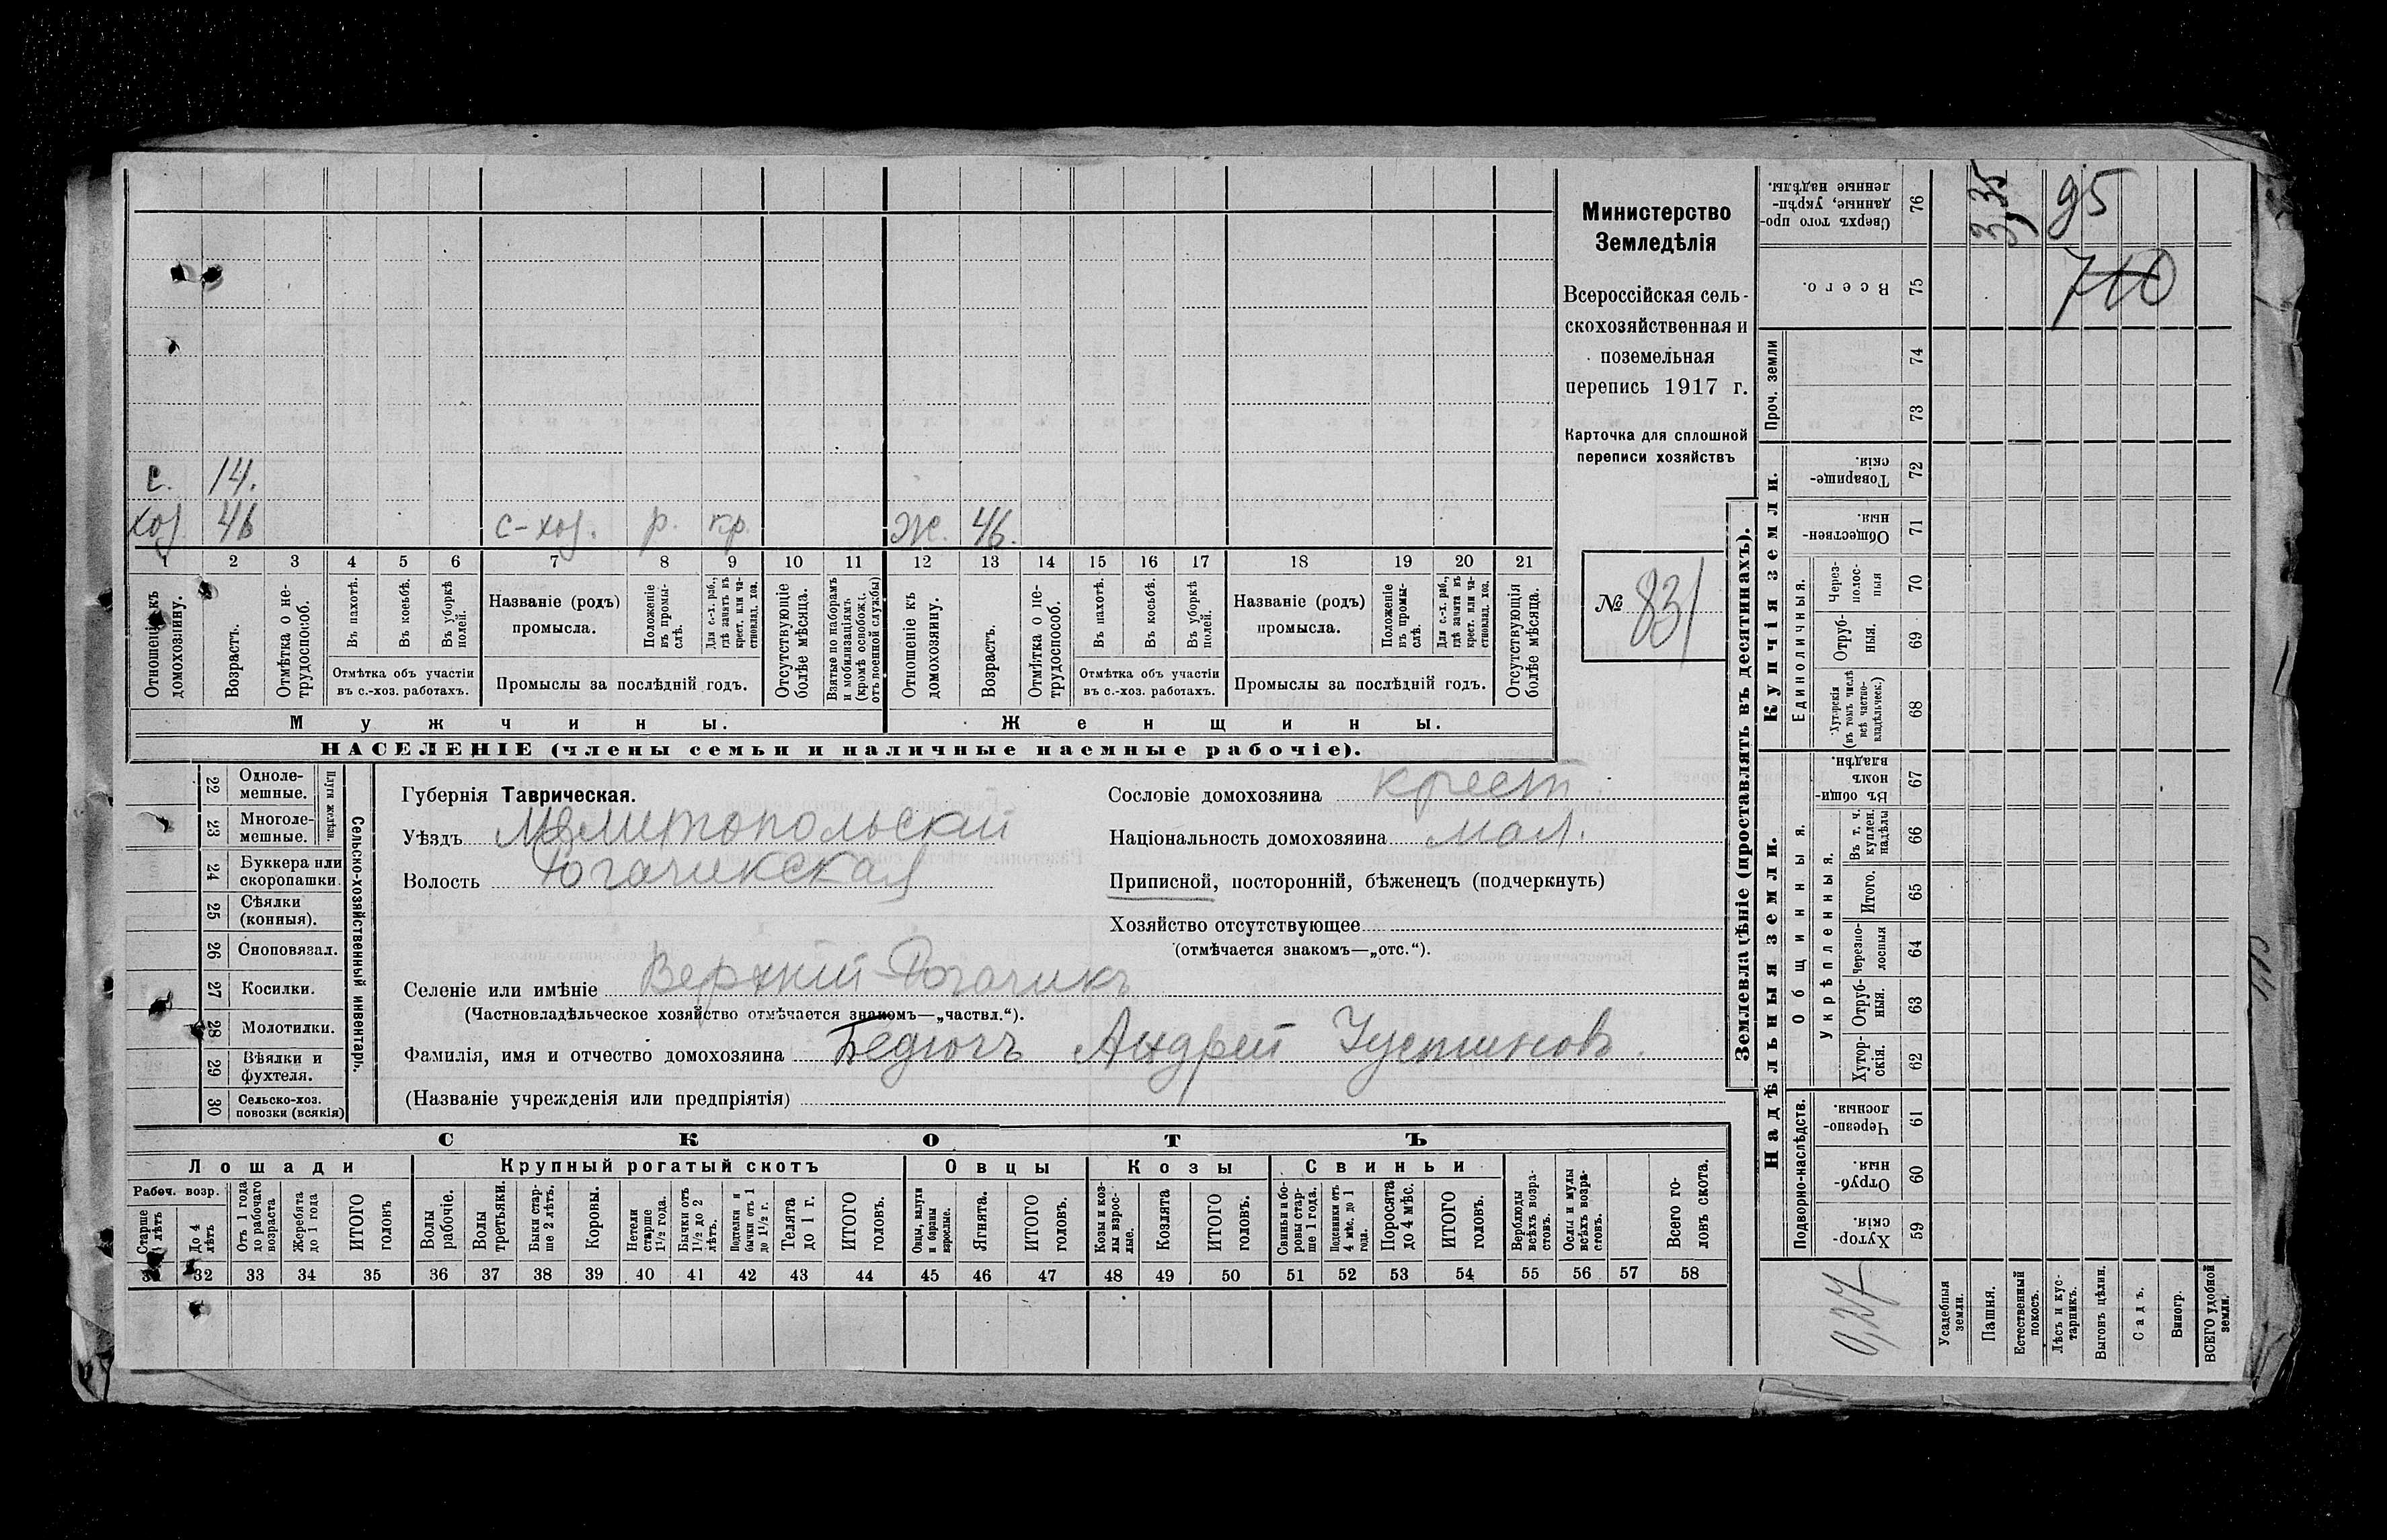 Министерство
Земледѣлія
Всероссійская сель-
скохозяйственная и
поземельная
перепись 1917 г.
Карточка для сплошной
переписи хозяйствъ
№ 831
с. 14.
хоз 46 с-хоз. р. кр. Ж. 46.
1 2 3 4 5 6 7 8 9 10 11 12 13 14 15 16 17 18 19 20 21
Отношеніе къ домохозяину.
Возрастъ.
Отмѣтка о не-трудоспособ.
Въ пахотѣ.
Въ косьбѣ.
Въ уборкѣ полей.
Отмѣтка объ участіи
въ с.-хоз. работахъ.
Названіе (родъ)
промысла.
Положеніе въ промы-слѣ.
Для с.-х. раб., гдѣ занятъ въ крест. или ча-стновлад. хоз.
Промыслы за послѣдній годъ.
Отсутствующіе болѣе мѣсяца.
Взятые по наборамъ и мобилизаціямъ (кромѣ освобожд. отъ военной службы)
Отношеніе къ домохозяину.
Возрастъ.
Отмѣтка о не-трудоспособ.
Въ пахотѣ.
Въ косьбѣ.
Въ уборкѣ полей.
Отмѣтка объ участіи
въ с.-хоз. работахъ.
Названіе (родъ)
промысла.
Положеніе въ промы-слѣ.
Для с.-х. раб., гдѣ занята въ крест. или ча-стновлад. хоз.
Промыслы за послѣдній годъ.
Отсутствующія болѣе мѣсяца.
Мужчины. Женщины.
НАСЕЛЕНІЕ (члены семьи и наличные наемные рабочіе).
Сельско-хозяйственный инвентарь.
Плуги желѣзн.
22 Одноле-мешные.
23 Многоле-мешные.
24 Буккера или скоропашки.
25 Сѣялки (конныя).
26 Сноповязал.
27 Косилки.
28 Молотилки.
29 Вѣялки и фухтеля.
30 Сельско-хоз. повозки (всякія)
Губернія Таврическая.
Уѣздъ Мелитопольскій
Волость Рогачикская
Селеніе или имѣніе Верхній-Рогачикъ
(Частновладѣльческое хозяйство отмѣчается знакомъ—„частвл.“).
Фамилія, имя и отчество домохозяина Бедюгъ Андрей Устиновъ.
(Названіе учрежденія или предпріятія)
Сословіе домохозяина крест.
Національность домохозяина мал.
Приписной, посторонній, бѣженецъ (подчеркнуть)
Хозяйство отсутствующее
(отмѣчается знакомъ—„отс.“).
СКОТЪ
Лошади Крупный рогатый скотъ Овцы Козы Свиньи
Рабоч. возр.
Старше 4 лѣтъ
До 4 лѣтъ
Отъ 1 года до рабочаго возраста
Жеребята до 1 года
ИТОГО головъ
Волы рабочіе.
Волы третьяки.
Быки стар-ше 2 лѣтъ.
Коровы.
Нетели старше 1 1/2 года.
Бычки отъ 1 1/2 до 2 лѣтъ.
Подтелки и бычки отъ 1 до 1 1/2 г.
Телята до 1 г.
ИТОГО головъ.
Овцы, валухи и бараны взрослые.
Ягнята.
ИТОГО головъ.
Козы и коз-лы взрос-лые.
Козлята
ИТОГО головъ.
Свиньи и бо-ровы стар-ше 1 года.
Подсвинки отъ 4 мѣс. до 1 года.
Поросята до 4 мѣс.
ИТОГО головъ.
Верблюды всѣхъ возра-стовъ.
Ослы и мулы всѣхъ возра-стовъ.
Всего го-ловъ скота.
32 33 34 35 36 37 38 39 40 41 42 43 44 45 46 47 48 49 50 51 52 53 54 55 56 57 58
Землевладѣніе (проставлять въ десятинахъ).
Купчія земли.
Надѣльныя земли.
Сверхъ того про-данные, укрѣп-ленные надѣлы. 76
3,35
95
Всего. 75
710
Проч. земли
74
73
Товарище-скія. 72
Обществен-ныя. 71
Единоличныя.
Через-полос-ныя 70
Отруб-ныя. 69
Хуторскія (въ томъ числѣ всѣ частно-владѣльческ.) 68
Общинныя.
Въ общи-номъ владѣн. 67
Укрѣпленныя.
Въ т. ч. куплен. надѣлы 66
Итого. 65
Черезпо-лосныя 64
Отруб-ныя. 63
Хутор-скія. 62
Подворно-наслѣдств.
Черезпо-лосныя. 61
Отруб-ныя. 60
Хутор-скія. 59
0,27
Усадебныя земли.
Пашня.
Естественный покосъ.
Лѣсъ и кус-тарникъ.
Выгонъ цѣлин.
Садъ.
Виногр.
ВСЕГО удобной земли.